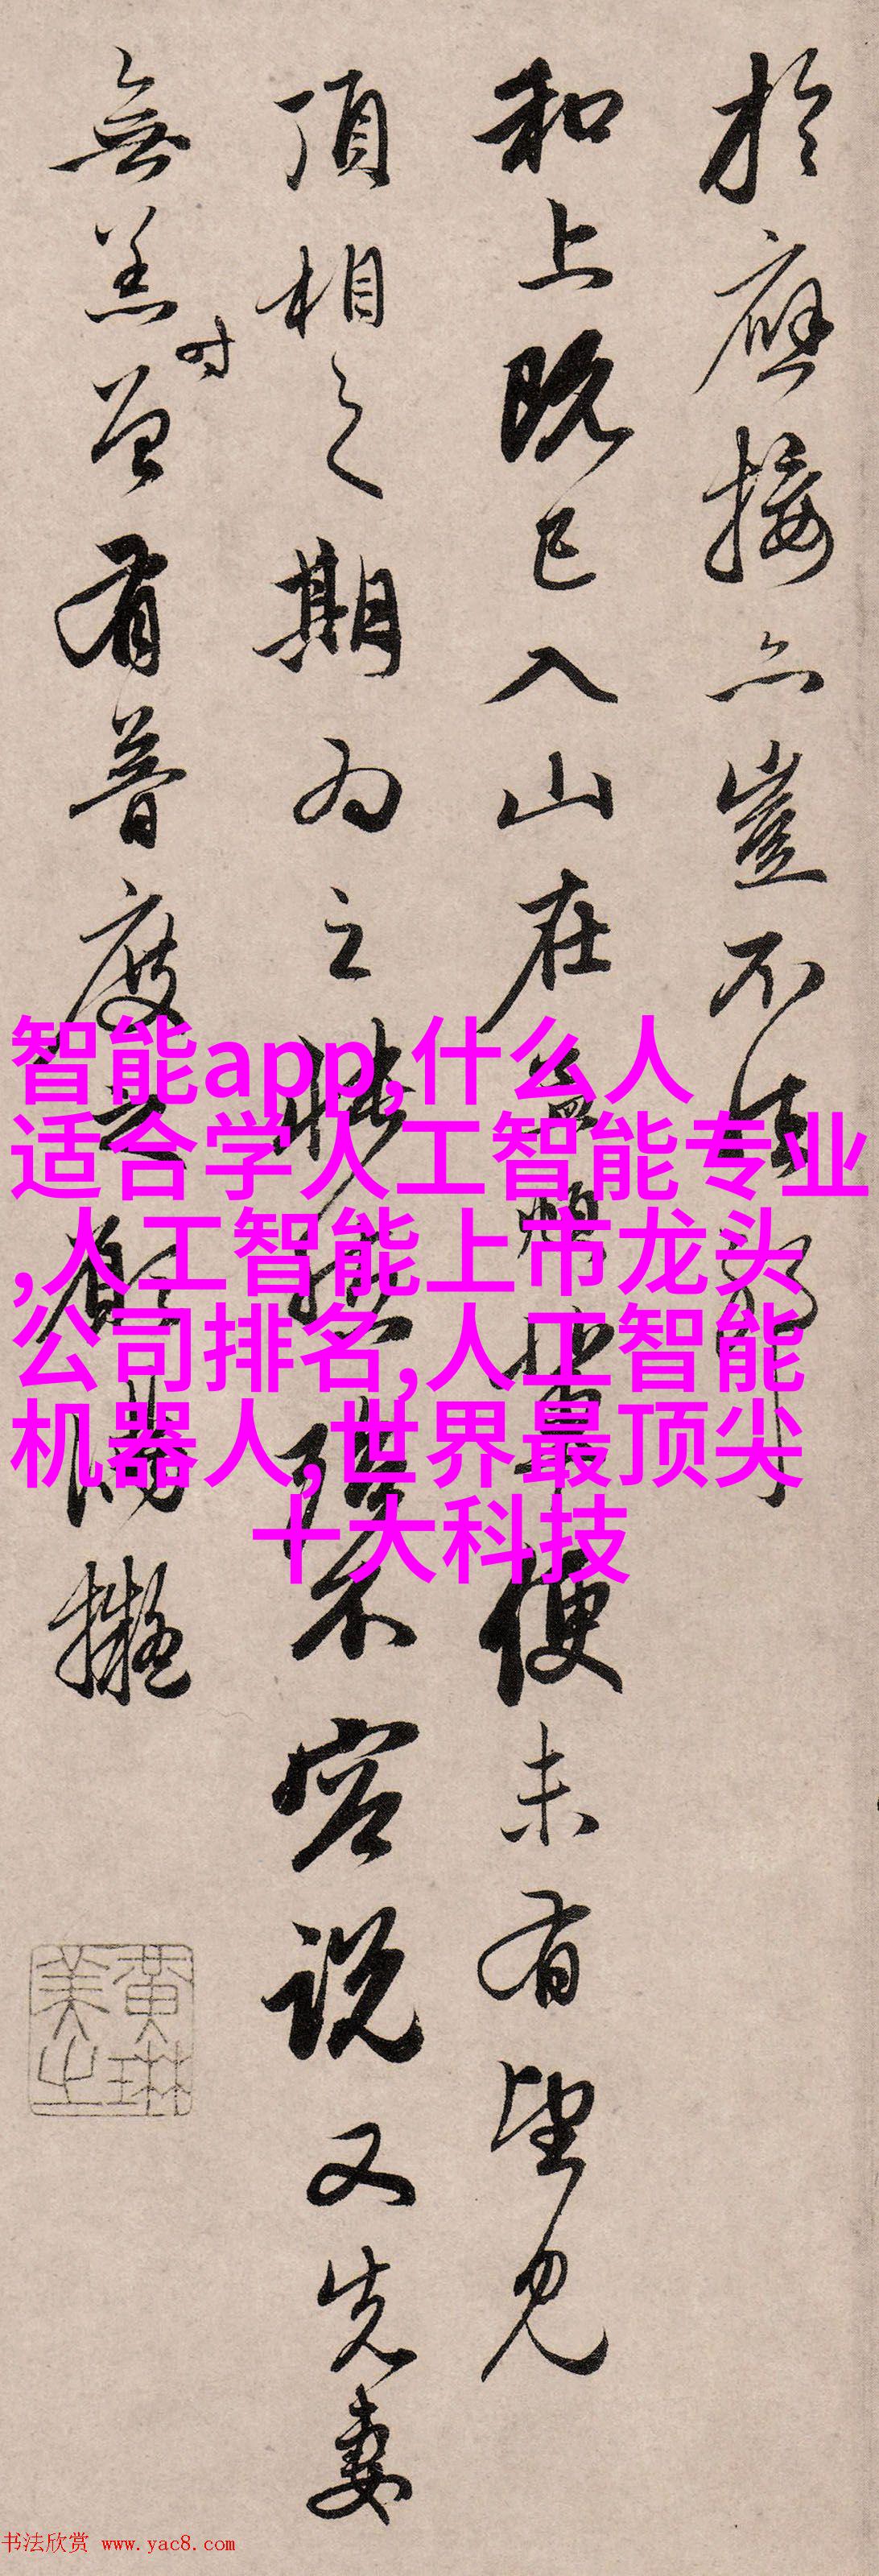 於應接亦豈不
和上既已入山在便未有望見
頂相之期为之悵不容説又先妻
無恙时曽有普度之願滿擬
黄琳美之
智能app,什么人
适合学人工智能专业
,人工智能上市龙头
公司排名,人工智能
机器人,世界最顶尖
十大科技
书法欣赏 www.yac8.com